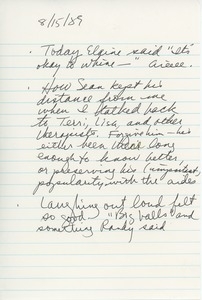 8/15/89
· Today Elaine said "it's
okay to whine—" Aieee.
· How Sean kept his
distance from me
when I talked back
to Terri, Lisa, and other
therapists. Forgive him—he's
either been there long
enough to know better
or preserving his (important)
popularity with the aides
· Laughing out loud felt
so good. "Big balls" and
something Randy said